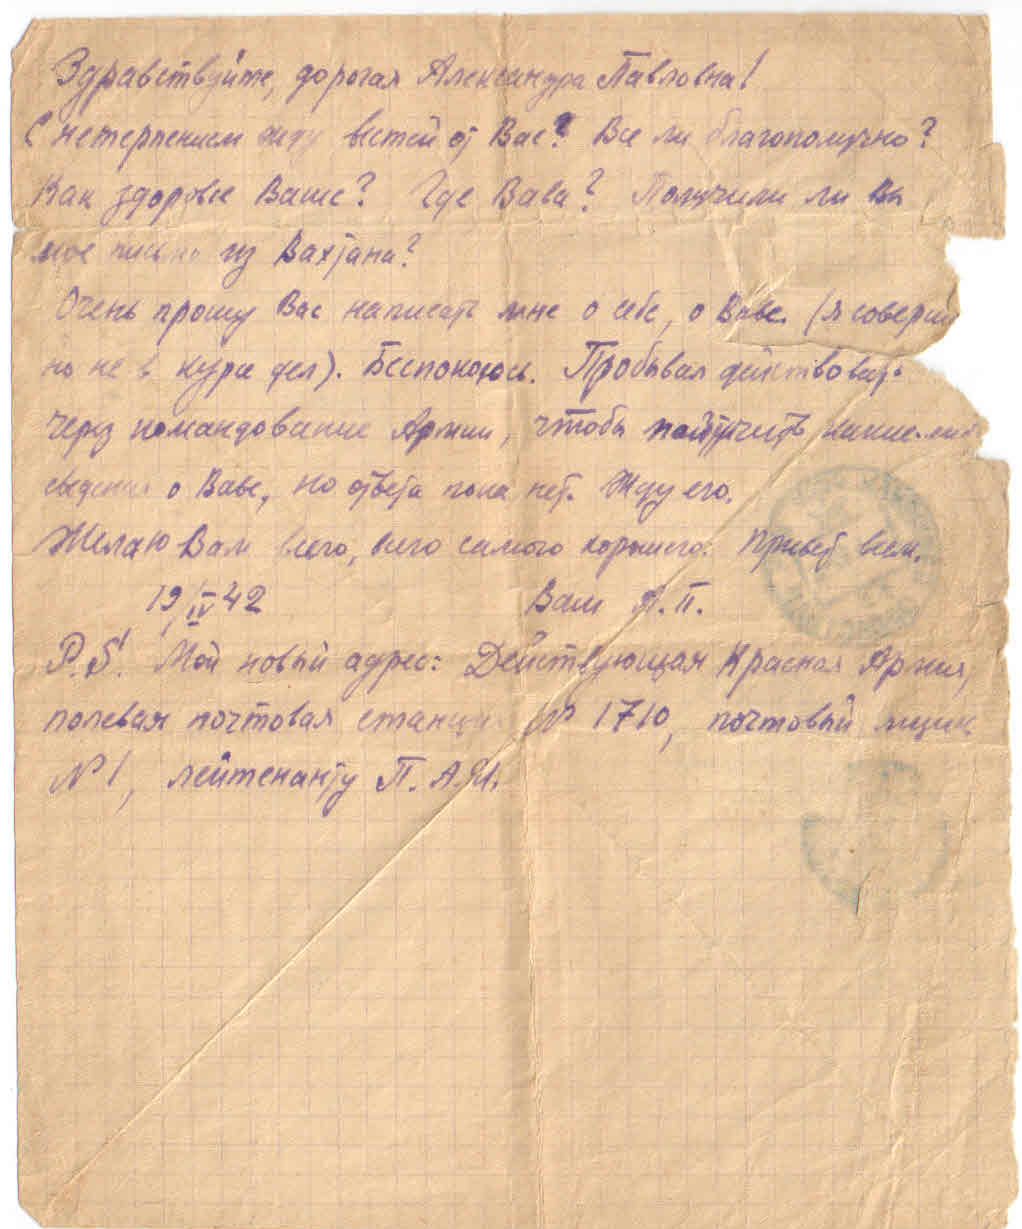 Здравствуйте, дорогая Александра Павловна!
С нетерпением жду вестей от Вас? Все ли благополучно?
Как здоровье Ваше? Где Вава? Получили ли Вы
мое письмо из Вахтана?
Очень прошу Вас написать мне о себе, о Ваве. (Я соверш
но не в курсе дел). Беспокоюсь. Пробывал действовать
через командование Армии, чтобы получить какие-либ
сведения о Ваве, но ответа пока нет. Жду его.
Желаю Вам всего, всего самого хорошего. Привет всем.
19/IV 42 Ваш П.
P.S. Мой новый адрес: Действующая Красная Армия,
полевая почтовая станция № 1710, почтовый ящик
№ 1, лейтенанту П. А.И.